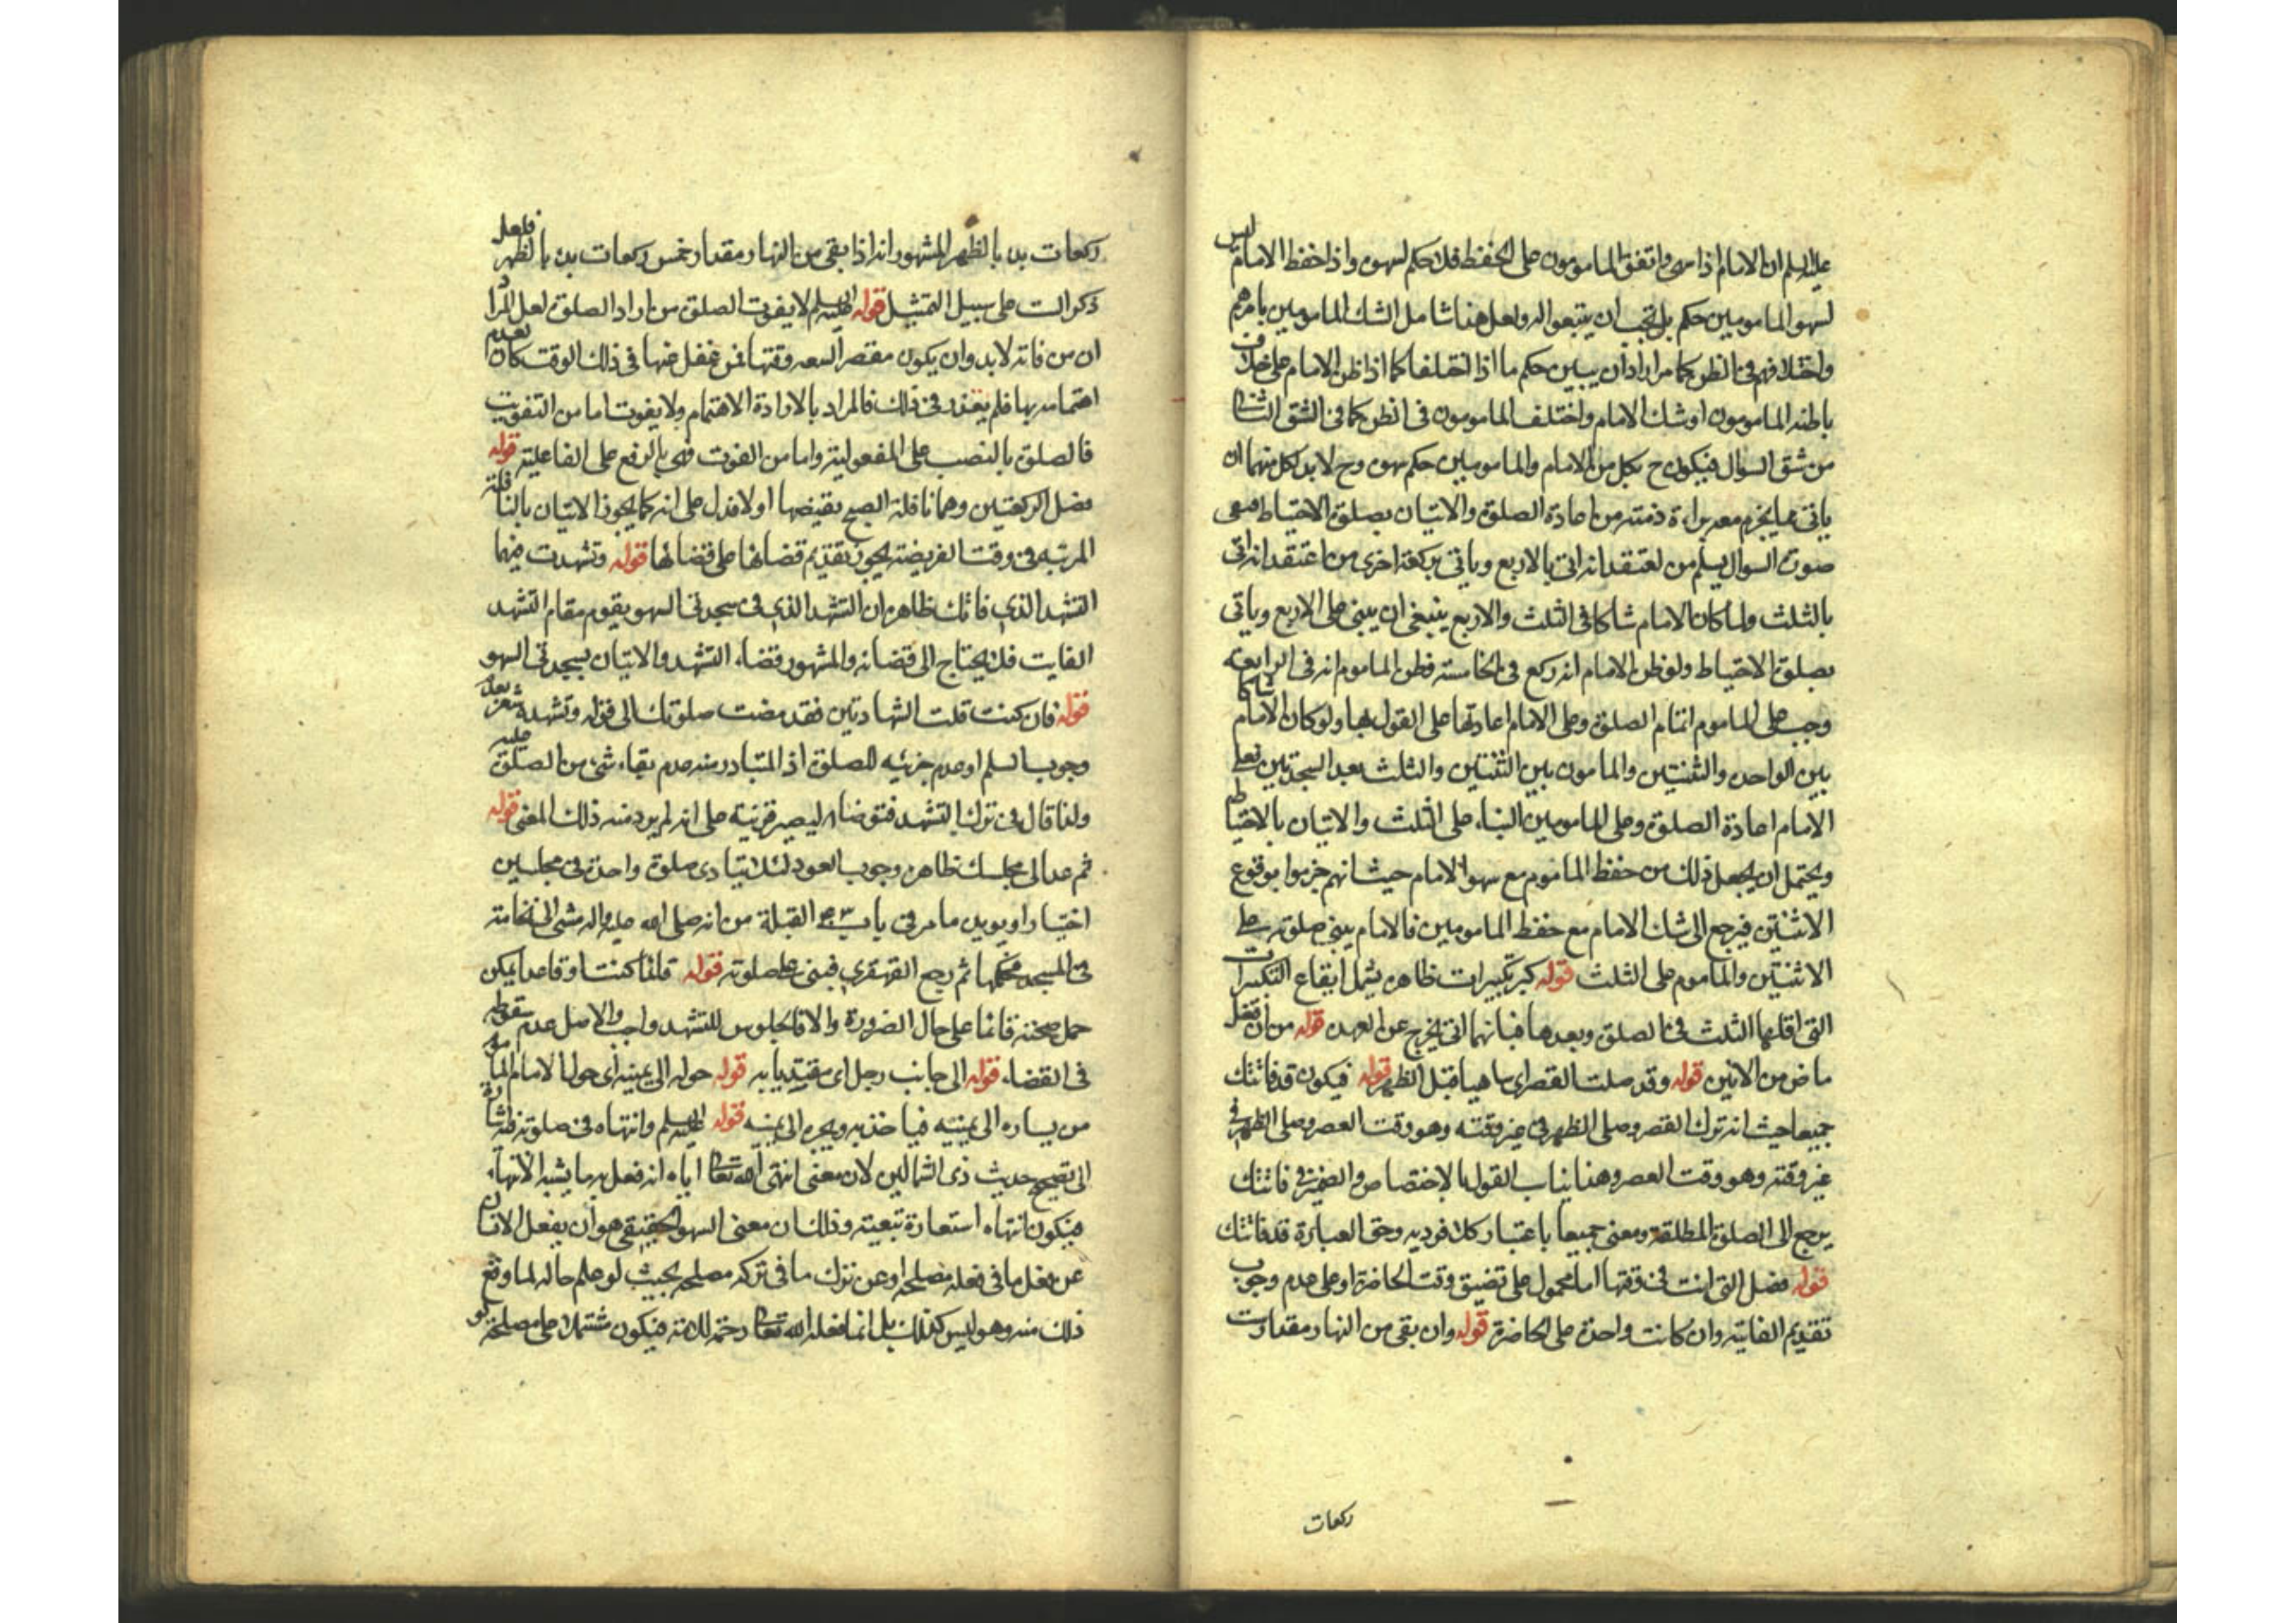 عليه السلم ان الامام اذا سهى واتفق المامومون على الحفظ فلا حكم لسهوه واذا حفظ الامام ليس
لسهو المامومين حكم بل يجب ان يتبعوا له ولعل هذا شامل لشك المامومين باسرهم
واختلافهم في الظن كما مر اراد ان يبين حكم ما اذا اختلفا كما اذا ظن الامام على خلاف
ما ظنه المامومون او شك الامام واختلف المامومون في الظن كما في الشق الثاني
من شق السوال فيكون ح لكل من الامام والمامومين حكم سهوه وح لابد لكل منهما ان
ياتي بما يجزم معه براءة ذمته من اعادة الصلوة والاتيان بصلوة الاحتياط ففي
صورة السوال يسلم من يعتقد انه اتى بالاربع وياتي بركعة اخرى من اعتقد انه اتى
بالثلث ولما كان الامام شاكا في الثلث والاربع ينبغي ان يبني على الاربع وياتي
بصلوة الاحتياط ولو ظن الامام انه ركع في الخامسة فظن الماموم انه في الرابعة
وجب على الماموم اتمام الصلوة وعلى الامام اعادتها على القول بها ولو كان الامام شاكا
بين الواحدة والثنتين والمامون بين الثنتين والثلث بعد السجدتين فعلى
الامام اعادة الصلوة وعلى المامومين البناء على الثلث والاتيان بالاحتياط
ويحتمل ان يجعل ذلك من حفظ الماموم مع سهو الامام حيث انهم جزموا بوقوع
الاثنتين فيرجع الى شك الامام مع حفظ المامومين فالامام يبني صلوته على
الاثنتين والماموم على الثلث قوله كبر تكبيرات ظاهره يشمل ايقاع التكبيرات
التي اقلها الثلث في الصلوة وبعدها فبايهما اتى يخرج عن العهدة قوله من ان تفعل
ما ض من الاين قوله وقد صلت القصر اي ساهيا قبل الظهر قوله فيكون قد فاتتك
جميعا حيث انه ترك القصر وصلى الظهر في غير وقته وهو وقت العصر وصلى الظهر في
غير وقته وهو وقت العصر وهذا يناسب القول بالاختصاص والضمير في فاتتك
يرجع الى الصلوة المطلقة ومعنى جميعا باعتبار كلا فرديه وحق العبارة قد فاتتك
قوله فضل التي انت في وقتها اما محمول على تضيق وقت الحاضرة او على عدم وجوب
تقديم الفايتة وان كانت واحدة على الحاضرة قوله وان بقي من النهار مقدار ست
ركعات
ركعات بدء بالظهر المشهور انه اذا بقي من النهار مقدار خمس ركعات بدء بالظهر فلعل
ذكر الست على سبيل التمثيل قوله عليه السلم لا يفوت الصلوة من اراد الصلوة لعل المراد
ان من فاته لابد وان يكون مقصرا لسعة وقتها فمن غفل عنها في ذلك الوقت كان لعدم
اهتمامه بها فلم يعذر في ذلك فالمراد بالارادة الاهتمام ولا يفوت اما من التفويت
فالصلوة بالنصب على المفعولية واما من الفوت فهي بالرفع على الفاعلية قوله
فصل الركعتين وهما نافلة الصبح يقيضها اولا فدل على انه كما يجوز الاتيان بالنافلة
المرتبه في وقت الفريضة يجوز تقديم قضائها على قضائها قوله وتشهدت فيهما
التشهد الذي فاتك ظاهره ان التشهد الذي في سجدتي السهو يقوم مقام التشهد
الفايت فلا يحتاج الى قضائه والمشهور قضاء التشهد والاتيان بسجدتي السهو
قوله فان كنت قلت الشهادتين فقد مضت صلوتك الى قوله وتشهد يشعر بعدم
وجوب السلم او عدم جزئيه للصلوة اذ المتبادر منه عدم بقاء شيء من الصلوة عليه
ولذا قال في ترك التشهد فتوضا ليصير قرنية على انه لم يرد منه ذلك المعنى قوله
ثم عد الى مجلسك ظاهره وجوب العود لئلا يتادى صلوة واحدة في مجلسين
اختيارا ويويد ما مر في باب القبلة من انه صلى الله عليه واله مشى الى نخامة
في المسجد فحكها ثم رجع القهقرى فبنى على صلوته قوله قائما كنت او قاعدا يمكن
حمل صحته قائما على حال الضرورة والا فالجلوس للتشهد واجب والاصل عدم سقوطه
في القضاء قوله الى جانب رجل اي مقتديا به قوله حوله الى يمينه اي حول الامام الماموم
من يساره الى يمينه فياخذ به ويجره الى يمينه قوله عليه السلم وانتهاه في صلوته فيه اشارة
الى تصحيح حديث ذي الشمالين لان معنى انهى الله تعالى اياه انه فعل به ما يشبه الانهاء
فيكون انتهاه استعارة تبعيته وذلك ان معنى السهو الحقيقي هو ان يغفل الانسان
عن فعل ما في فعله مصلحه او عن ترك ما في تركه مصلحه بحيث لو علم حاله لما وقع
ذلك منه وهو ليس كذلك بل انما فعله الله تعالى رحمة للامة فيكون مشتملا على مصلحة لو